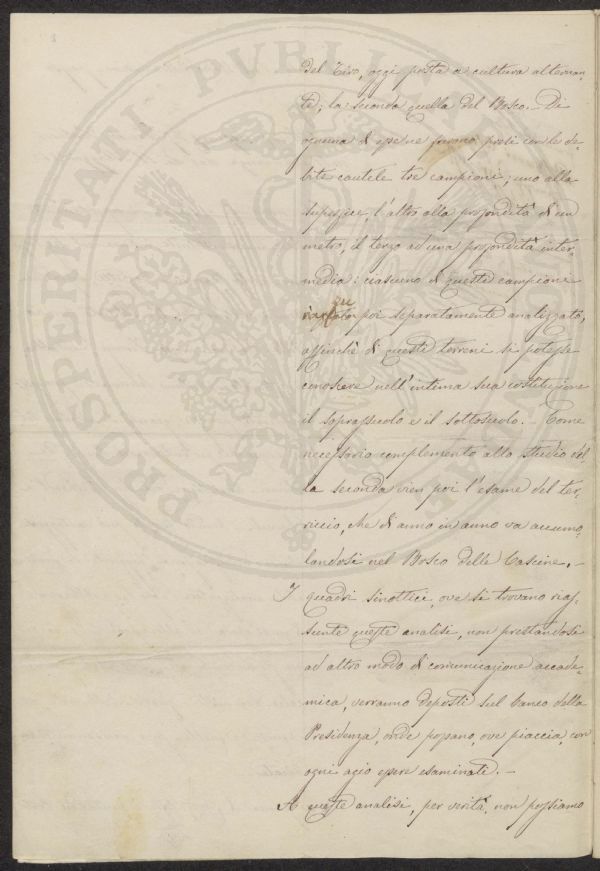 PROSPERITATI PVBLICAE
del Tiro, oggi posta a cultura alternan-
te; la seconda quella del Bosco. - Di
ognuna di esse ne furono presi con le de-
bite cautele tre campioni; uno alla
superficie, l'altro alla profondità di un
metro, il terzo ad una profondità inter-
media: ciascuno di questi campioni
fu poi separatamente analizzato,
affinchè di questi terreni si potesse
conoscere nell'intima sua costituzione
il soprassuolo e il sottosuolo. - Come
necessario complemento allo studio del-
la seconda vien poi l'esame del ter-
riccio, che di anno in anno va accumu-
landosi nel Bosco delle Cascine. -
I quadri sinottici, ove si trovano rias-
sunte queste analisi, non prestandosi
ad altro modo di comunicazione accade-
mica, verranno deposti sul banco della
Presidenza, onde possano, ove piaccia, con
ogni agio essere esaminati. -
A queste analisi, per verità, non possiamo